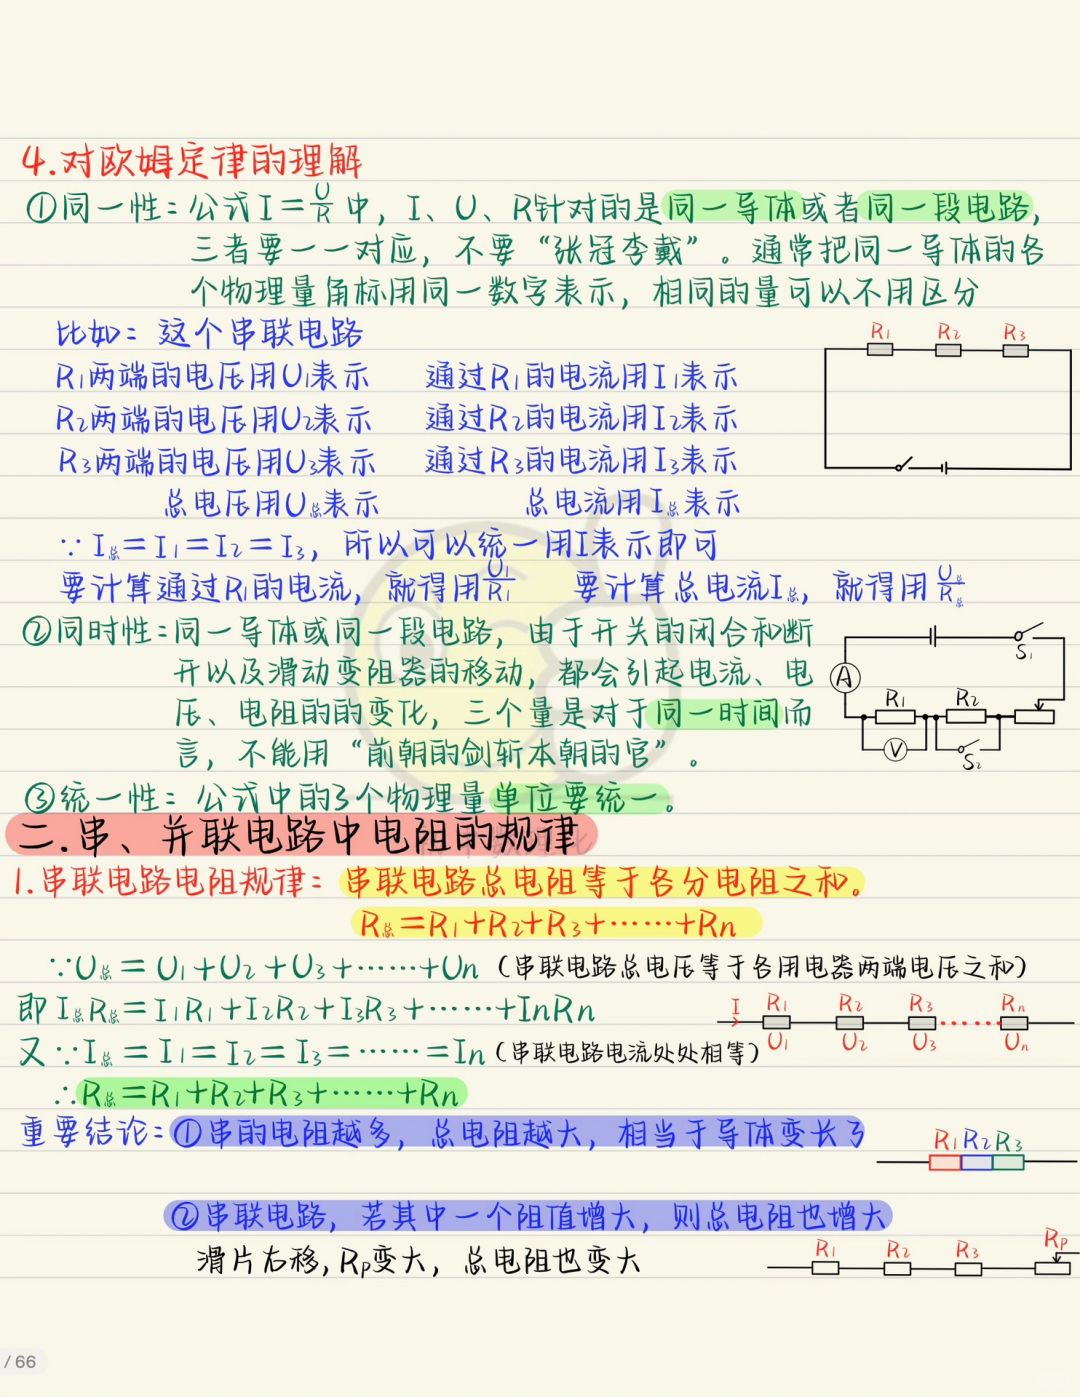 4.对欧姆定律的理解
①同一性：公式I=U/R中，I、U、R针对的是同一导体或者同一段电路，
三者要一一对应，不要“张冠李戴”。通常把同一导体的各
个物理量角标用同一数字表示，相同的量可以不用区分
比如：这个串联电路
R1 R2 R3
R1两端的电压用U1表示 通过R1的电流用I1表示
R2两端的电压用U2表示 通过R2的电流用I2表示
R3两端的电压用U3表示 通过R3的电流用I3表示
总电压用U总表示 总电流用I总表示
∵I总=I1=I2=I3，所以可以统一用I表示即可
要计算通过R1的电流，就得用U1/R1 要计算总电流I总，就得用U总/R总
②同时性：同一导体或同一段电路，由于开关的闭合和断
开以及滑动变阻器的移动，都会引起电流、电
压、电阻的的变化，三个量是对于同一时间而
言，不能用“前朝的剑斩本朝的官”。
S1
A
R1 R2
V
S2
③统一性：公式中的3个物理量单位要统一。
二.串、并联电路中电阻的规律
1.串联电路电阻规律：串联电路总电阻等于各分电阻之和。
R总=R1+R2+R3+……+Rn
∵U总=U1+U2+U3+……+Un（串联电路总电压等于各用电器两端电压之和）
即I总R总=I1R1+I2R2+I3R3+……+InRn
I R1 R2 R3 Rn
U1 U2 U3 Un
又∵I总=I1=I2=I3=……=In（串联电路电流处处相等）
∴R总=R1+R2+R3+……+Rn
重要结论：①串的电阻越多，总电阻越大，相当于导体变长了
R1R2R3
②串联电路，若其中一个阻值增大，则总电阻也增大
滑片右移，Rp变大，总电阻也变大
R1 R2 R3 Rp
/ 66